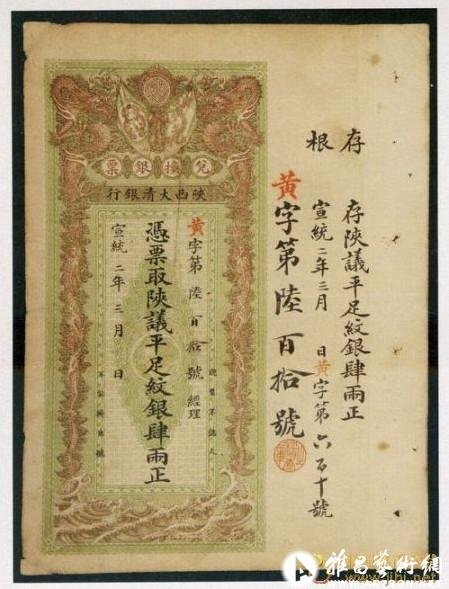 存根
存陝議平足紋銀肆兩正
宣統二年三月 日黃字第六百十號
黃字第陸百拾號
兌換銀票
陝西大清銀行
黃字第陸百拾號 經理
憑票取陝議平足紋銀肆兩正
宣統二年三月 日
認票不認人
雅昌藝術網